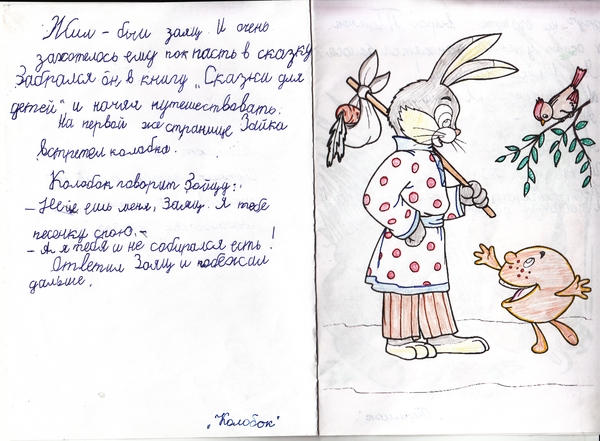 Жил-был заяц. И очень
захотелось ему поп пасть в сказку
Забрался он в книгу „Сказки для
детей" и начал путешествовать.
На первой же странице Зайка
встретел колобка.
Колобок говорит Зайцу:
– Не ешь меня, Заяц. Я тебе
песенку спою. –
– А я тебя и не собирался есть!
Ответил Заяц и побежал
дальше.
„Колобок"